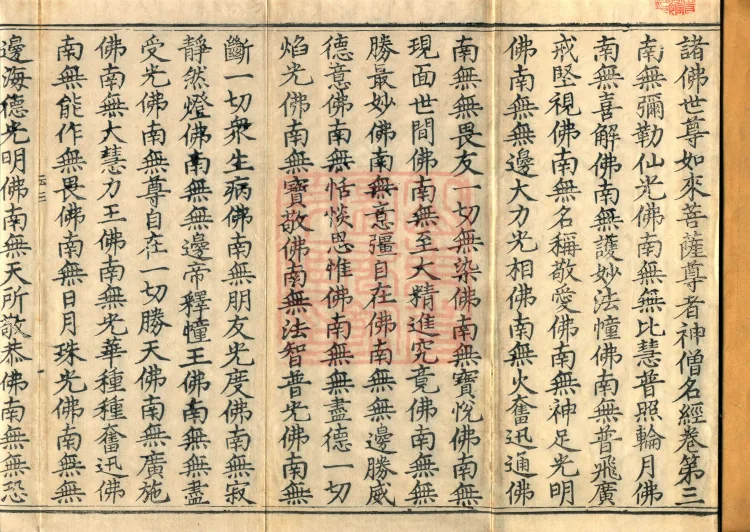 諸佛世尊如來菩薩尊者神僧名經卷第三
南無彌勒仙光佛南無無比慧普照輪月佛
南無喜解佛南無護妙法幢佛南無普飛廣
戒堅視佛南無名稱敬愛佛南無神足光明
佛南無無邊大力光相佛南無火奮迅通佛
南無無畏友一切無染佛南無寶悅佛南無
現面世間佛南無至大精進究竟佛南無
勝最妙佛南無意彊自在佛南無無邊勝威
德意佛南無恬惔思惟佛南無無盡德一切
焰光佛南無寶敬佛南無法智普光佛南無
斷一切衆生病佛南無朋友光度佛南無寂
靜然燈佛南無無邊帝釋幢王佛南無無盡
受光佛南無尊自在一切勝天佛南無廣施
佛南無大慧力王佛南無光華種種奮迅佛
南無能作無畏佛南無日月珠光佛南無無
云三
邊海德光明佛南無天所敬恭佛南無無恐